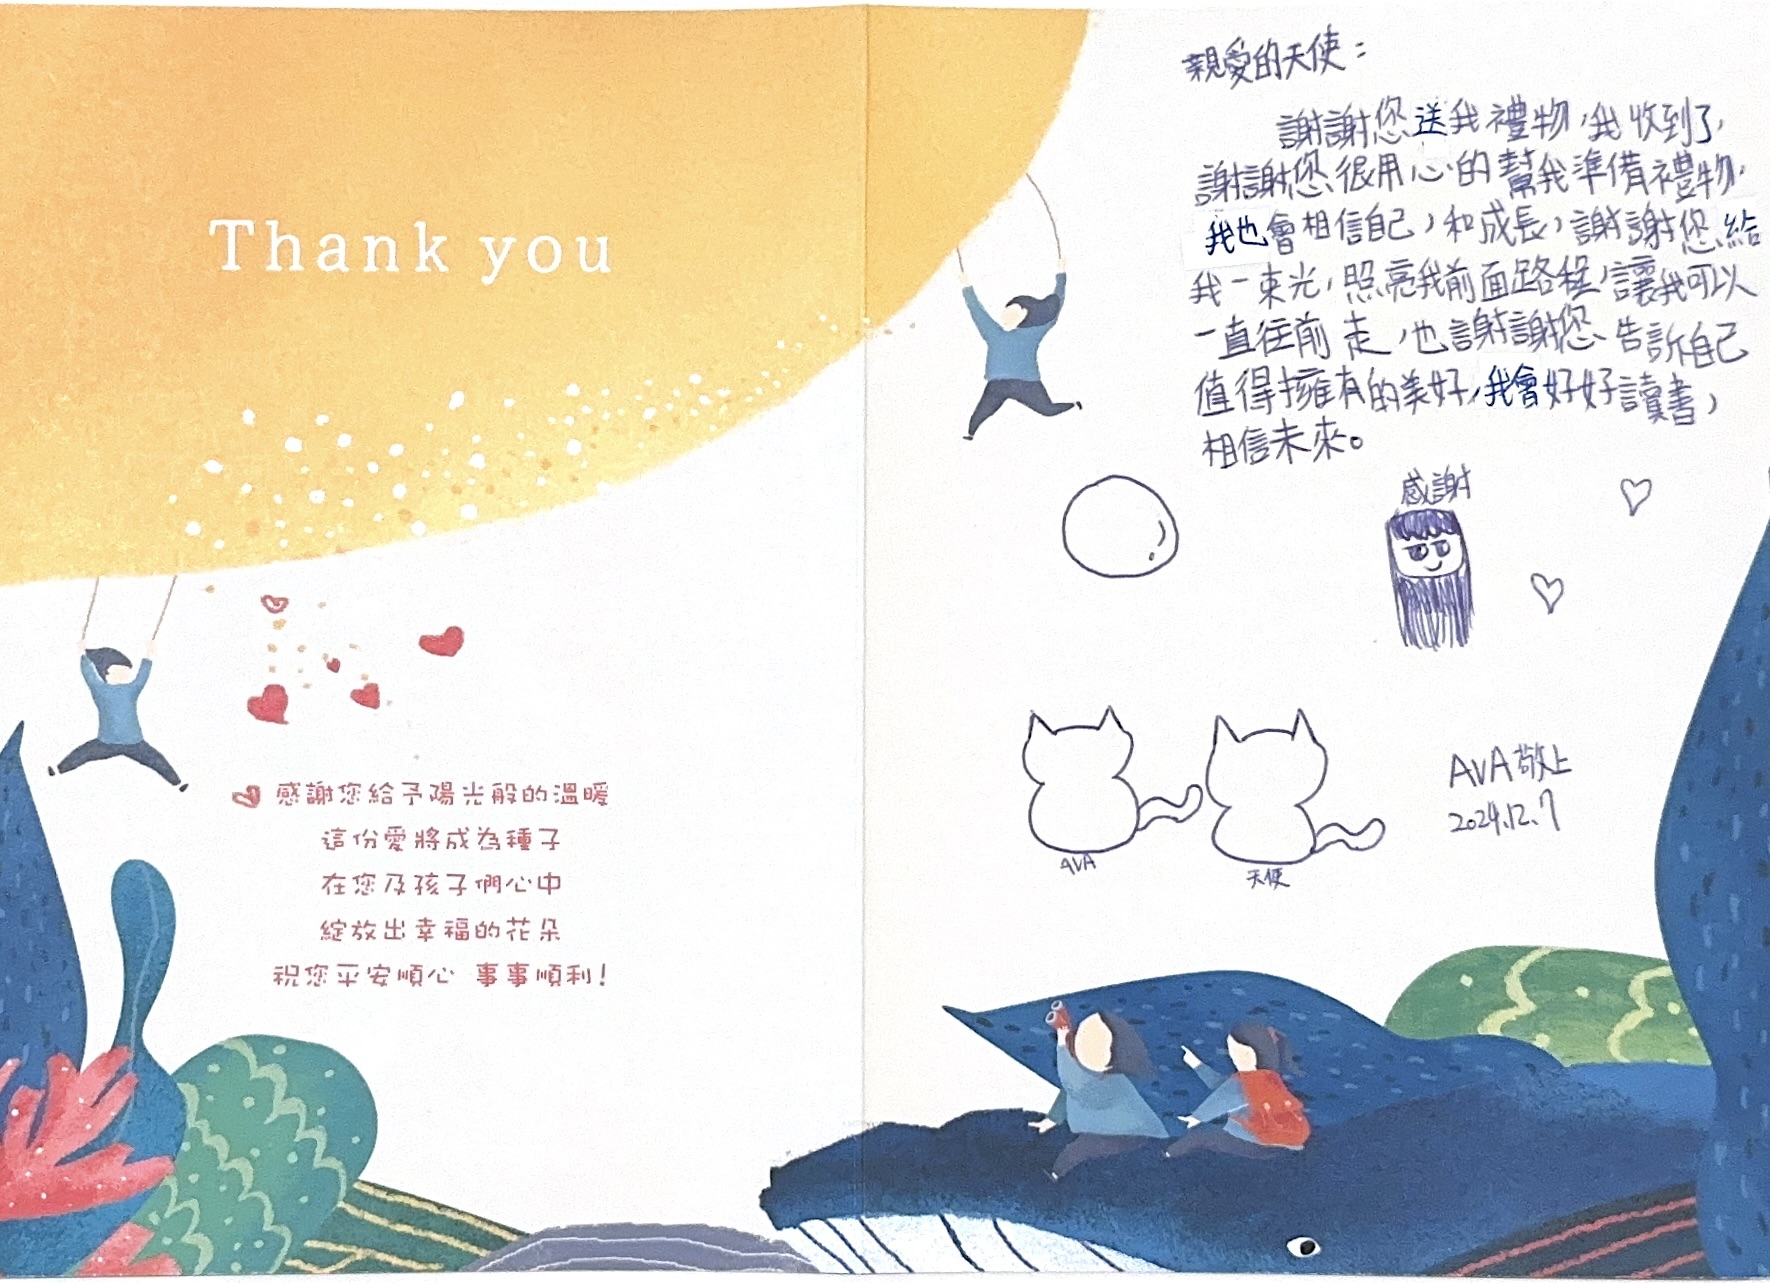 Thank you
感謝您給予陽光般的溫暖
這份愛將成為種子
在您及孩子們心中
綻放出幸福的花朵
祝您平安順心 事事順利!
親愛的天使:
謝謝您送我禮物,我收到了,
謝謝您很用心的幫我準備禮物,
我也會相信自己,和成長,謝謝您給
我一束光,照亮我前面路程,讓我可以
一直往前走,也謝謝您告訴自己
值得擁有的美好,我會好好讀書,
相信未來。
感謝
AVA
天使
AVA敬上
2024.12.7